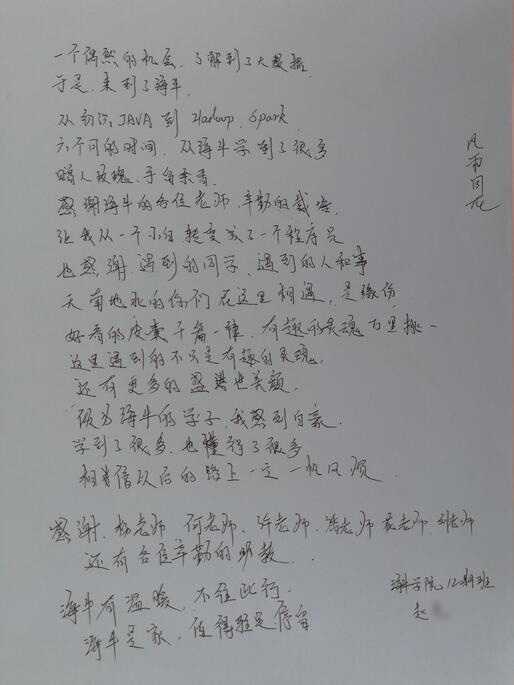 一个偶然的机会，了解到了大数据，
于是，来到了海牛，
从初识JAVA到 Hadoop、Spark
六个月的时间，从海牛学到了很多
赠人玫瑰，手留余香
感谢海牛的各位老师，辛勤的栽培，
让我从一个小白转变成了一个程序员
也感谢，遇到的同学，遇到的人和事
天南地北的你们在这里相遇，是缘份，
好看的皮囊千篇一律，有趣的灵魂百里挑一
这里遇到的不只是有趣的灵魂，
还有更多的盛世美颜，
做为海牛的学子，我感到自豪，
学到了很多，也懂得了很多
相信以后的路上一定一帆风顺
感谢，杨老师、何老师、许老师、老师、老师、刘老师
还有各位辛勤的助教...
海牛有温暖，不往此行，
海牛是家，值得驻足停留
海牛学院 12期班
赵